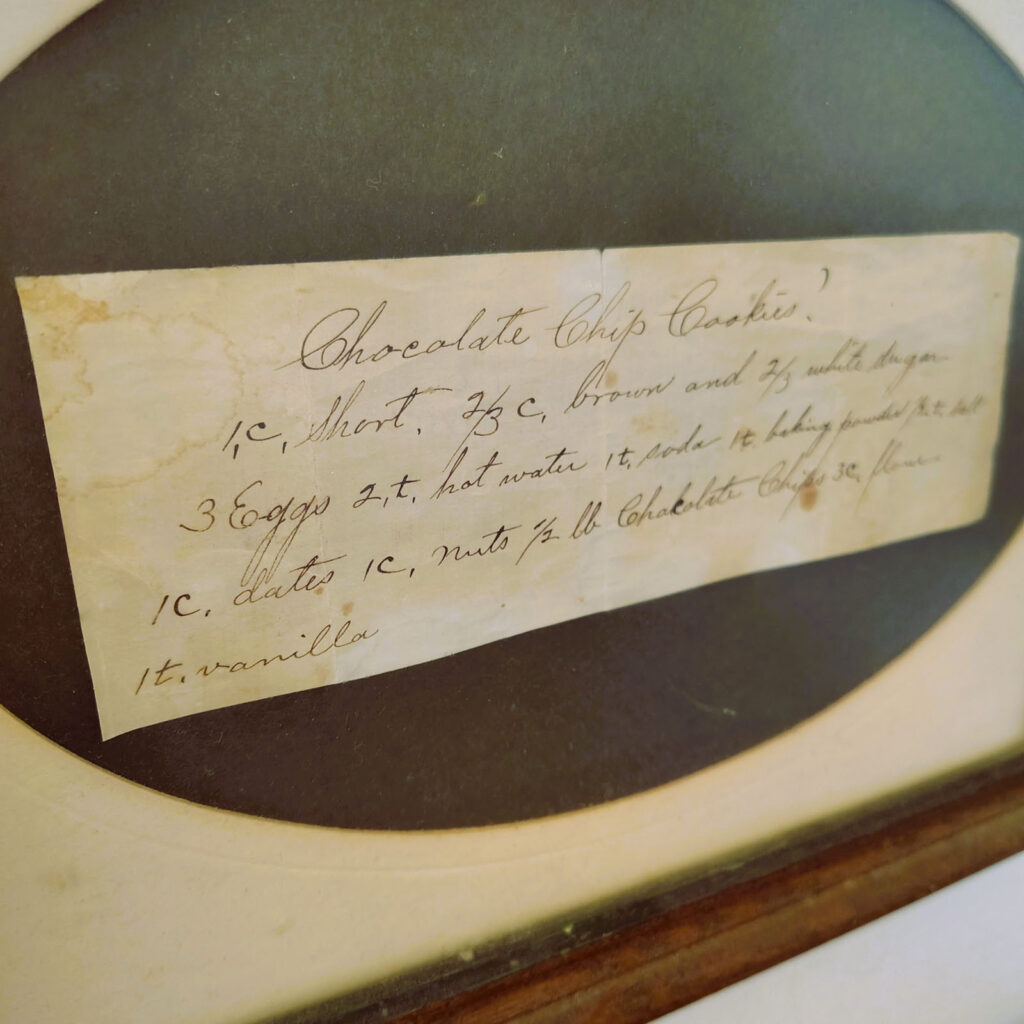 Chocolate Chip Cookies!
1,c, short, 2/3 c, brown and 2/3 white sugar
3 Eggs 2,t, hot water 1t, soda 1t baking powder 1/2 t, salt
1c, dates 1c, nuts 1/2 lb Chocolate Chips 3c, flour
1t, vanilla